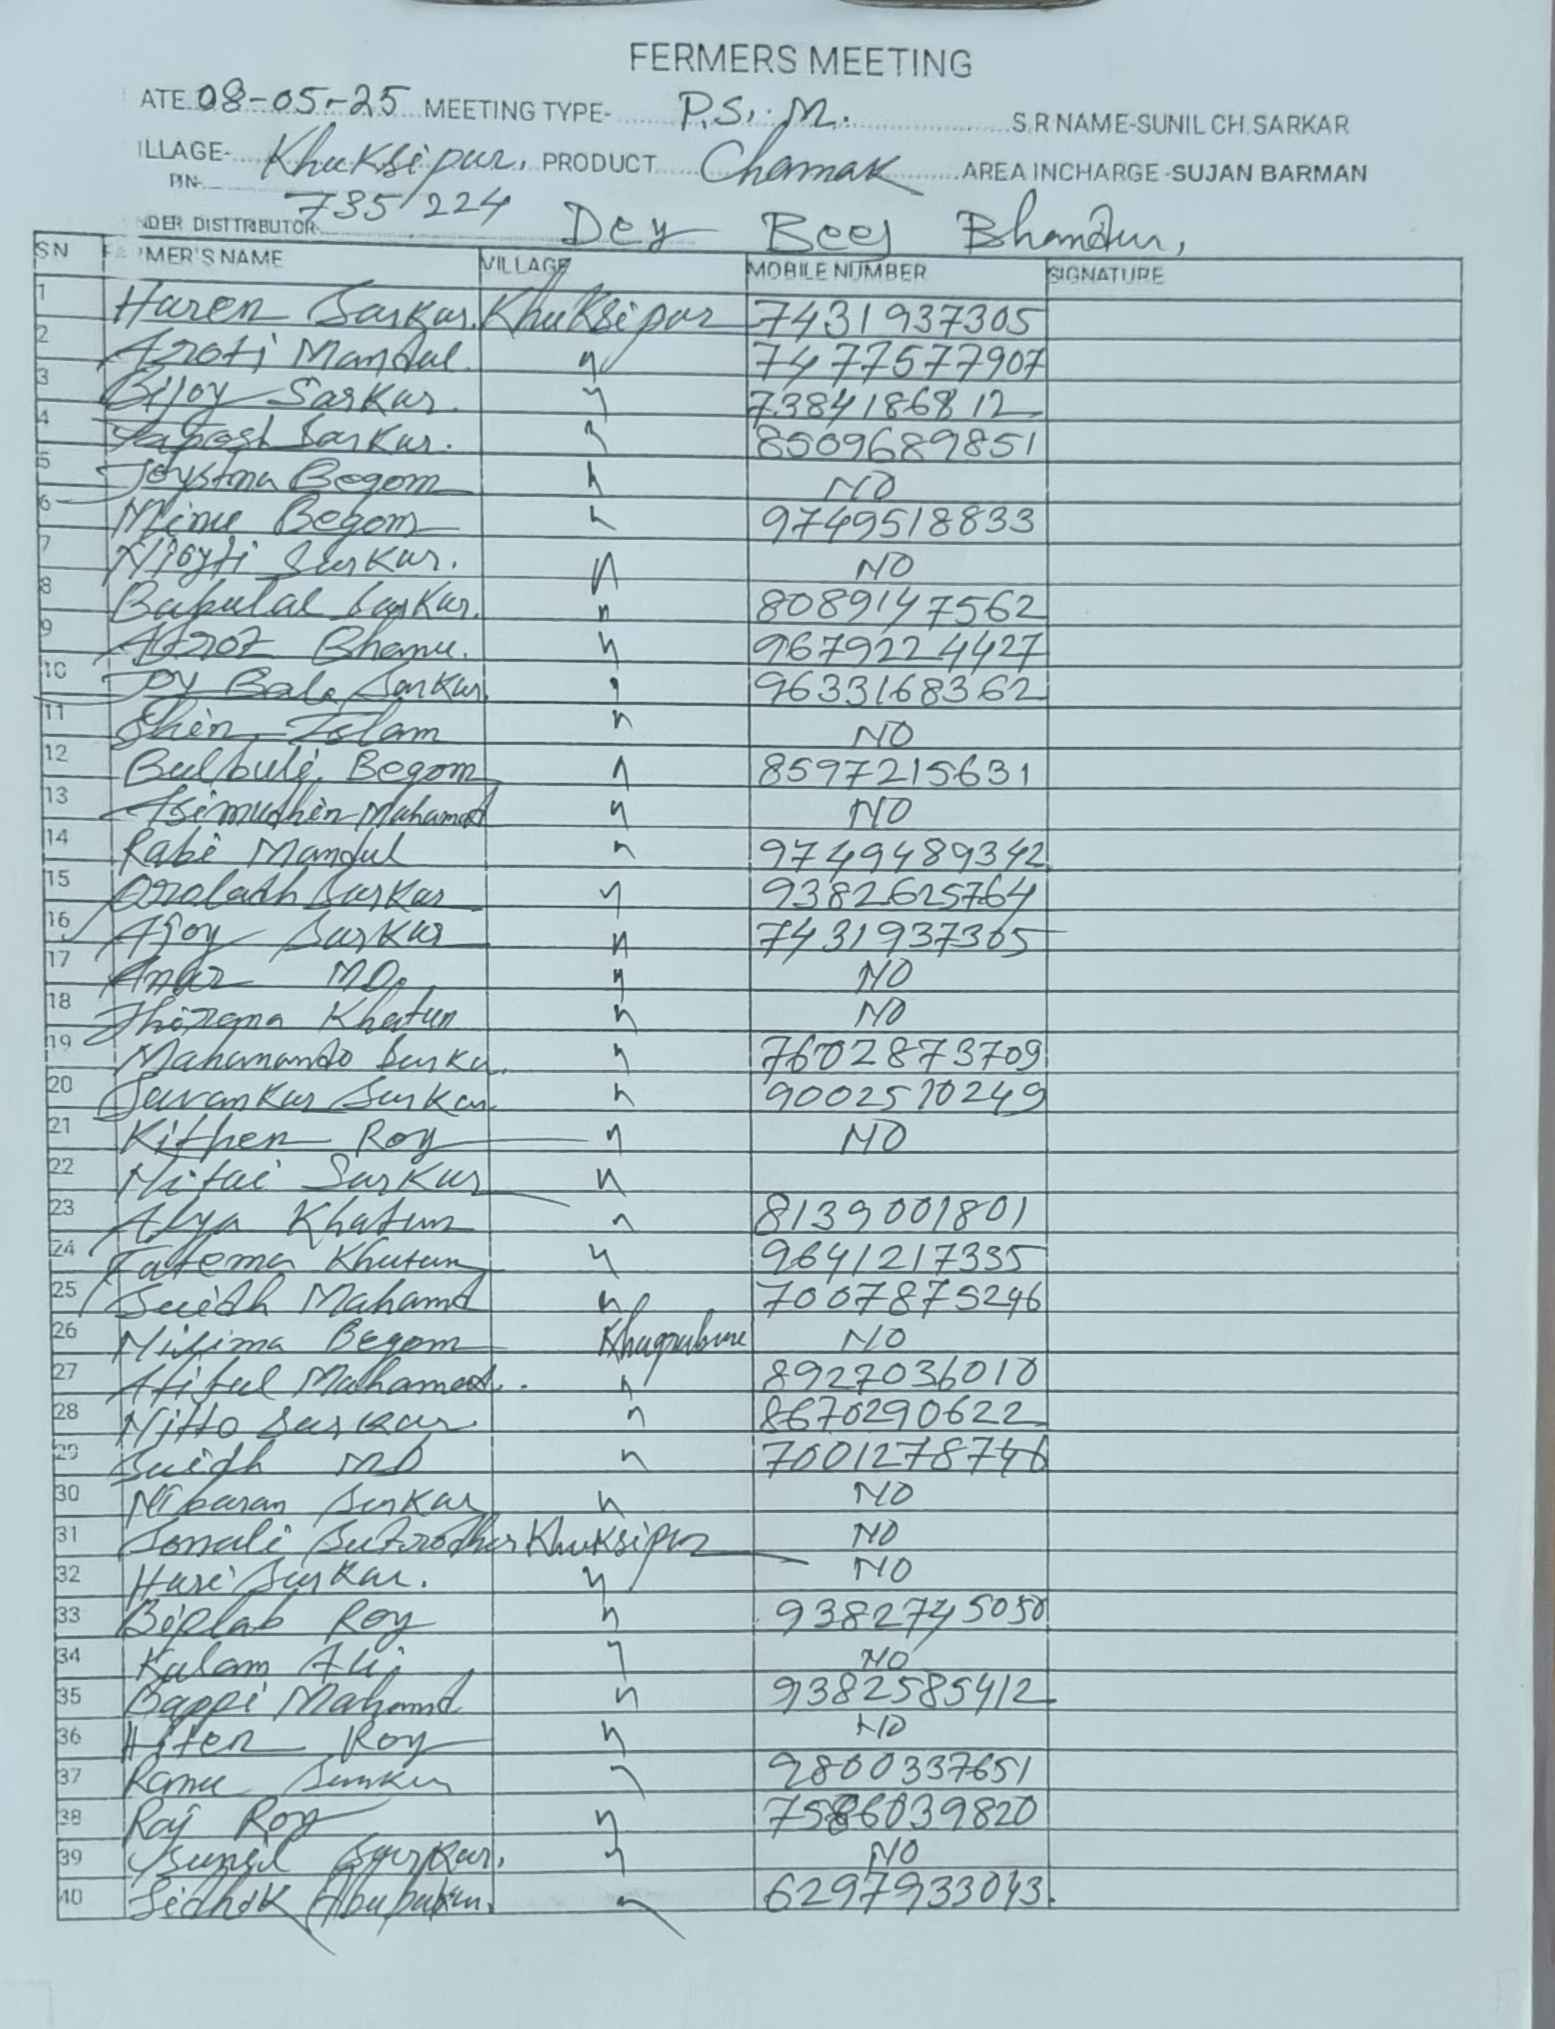 FERMERS MEETING
ATE 08-05-25 MEETING TYPE- P.S.M. S.R NAME-SUNIL CH.SARKAR
ILLAGE- Khuksipur, PRODUCT Chamak AREA INCHARGE-SUJAN BARMAN
PIN- 735224
NDER DISTTRIBUTOR Dey Beej Bhandur,
SN FARMER'S NAME VILLAGE MOBILE NUMBER SIGNATURE
1 Haren Sarkar. Khuksipur 7431937305
2 Aroti Mandul. " 7477577907
3 Bijoy Sarkar. " 7384186812
4 Taposh Sarkar. " 8509689851
5 Joystna Begom " NO
6 Minu Begom " 9749518833
7 Niojti Sarkar. " NO
8 Bapulal Sarkar. " 8089147562
9 Afroz Bhanu. " 9679224427
10 Joy Bala Sarkar. " 9633168362
11 Shin Islam " NO
12 Bulbuli Begom " 8597215631
13 Asimudhin Mahamad " NO
14 Rabi Mandul " 9749489342
15 Sarkar " 9382625764
16 Ajoy Sarkar " 7431937305
17 Anar MD. " NO
18 Khatun " NO
19 Mahanando Sarkar. " 7602873709
20 Suvankar Sarkar " 9002570249
21 Kithen Roy " NO
22 Nitai Sarkar "
23 Alya Khatun " 8139001801
24 Fatema Khatun " 9641217335
25 Mahamd " 7007875246
26 Begom NO
27 Atiful Mahamad. " 8927036010
28 Nitto Sarkar. " 8670290622
29 MD " 7001278746
30 Nibaran Sarkar " NO
31 Sonali Sutrodhar Khuksipur NO
32 Hari Sarkar. " NO
33 Biplab Roy " 9382745050
34 Kalam Ali " NO
35 Bappi Mahamd " 9382585412
36 Hiten Roy " NO
37 Ramu Sarkar " 9800337651
38 Raj Roy " 7586039820
39 Sunil Sarkar. " NO
40 Sidhik Abubakar. " 6297933043.